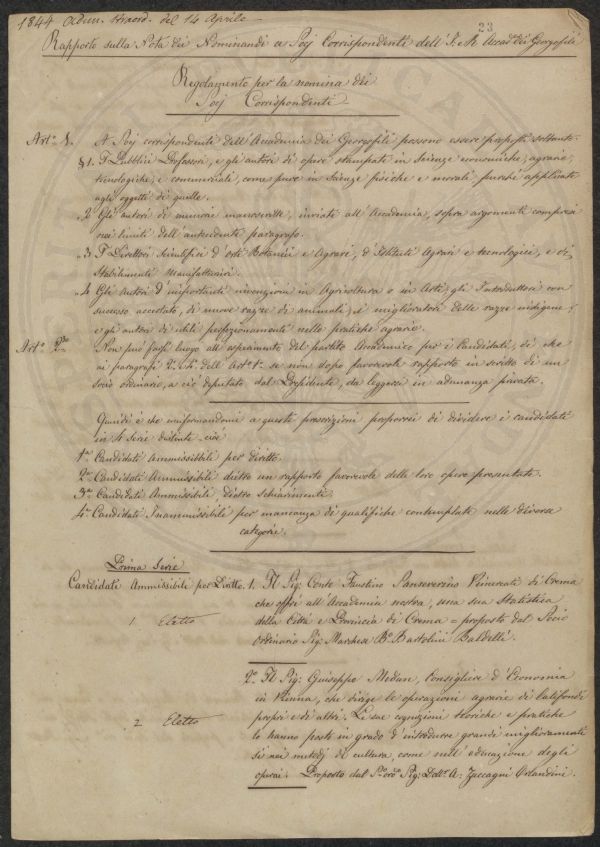 1844 Adun. straord. del 14 Aprile
23
Rapporto sulla Nota dei Nominandi a Socj Corrispondenti dell'I. e R. Accad. dei Georgofili
Regolamento per la nomina dei
Socj Corrispondenti
Art.º 1. A Socj corrispondenti dell'Accademia dei Georgofili possono essere proposti soltanto.
§ 1. I Pubblici Professori, e gli autori di opere stampate in Scienze economiche, agrarie,
tecnologiche, e commerciali, come pure in Scienze fisiche e morali purché applicate
agli oggetti di quelle.
2 Gli autori di memorie manoscritte, inviate all'Accademia, sopra argomenti compresi
nei limiti dell'antecedente paragrafo.
3 I Direttori Scientifici d'orti Botanici e Agrari, d'Istituti Agrari e tecnologici, e di
Stabilimenti Manifatturieri.
4 Gli Autori d'importanti invenzioni in Agricoltura o in Arti, gli Introduttori con
successo accertato, di nuove razze di animali, i miglioratori delle razze indigene;
e gli autori di utili perfezionamenti nelle pratiche agrarie.
Art.º 2.do Non può farsi luogo all'esperimento del partito Accademico per i Candidati, di che
ai paragrafi 2. e 4. dell'Art.º 1.º se non dopo favorevole rapporto in scritto di un
socio ordinario, a ciò deputato dal Presidente, da leggersi in adunanza privata.
Quindi è che uniformandomi a queste prescrizioni proporrei di dividere i candidati
in 4 serie distinte. cioè
1.a Candidati ammissibili per diritto.
2.a Candidati Ammissibili dietro un rapporto favorevole delle loro opere presentate.
3.a Candidati Ammissibili, dietro schiarimenti.
4.a Candidati Inammissibili per mancanza di qualifiche contemplate nelle diverse
categorie.
Prima Serie
Candidati Ammissibili per Diritto. 1. Il Sig. Conte Faustino Sanseverino Vimercati di Crema
che offrì all'Accademia nostra, una sua Statistica
1 Eletto della Città e Provincia di Crema = proposto dal Socio
Ordinario Sig. Marchese B. Bartolini Baldelli.
2.º Il Sig. Guiseppe Medan, Consigliere d'Economia
in Vienna, che dirige le operazioni agrarie di latifondi
2 Eletto propri e di altri. Le sue cognizioni teoriche e pratiche
lo hanno posto in grado d'introdurre grandi miglioramenti
sì nei metodj di cultura, come nell'educazione degli
operai. Proposto dal S.º ord.º Sig. Dott. A. Zuccagni Orlandini.